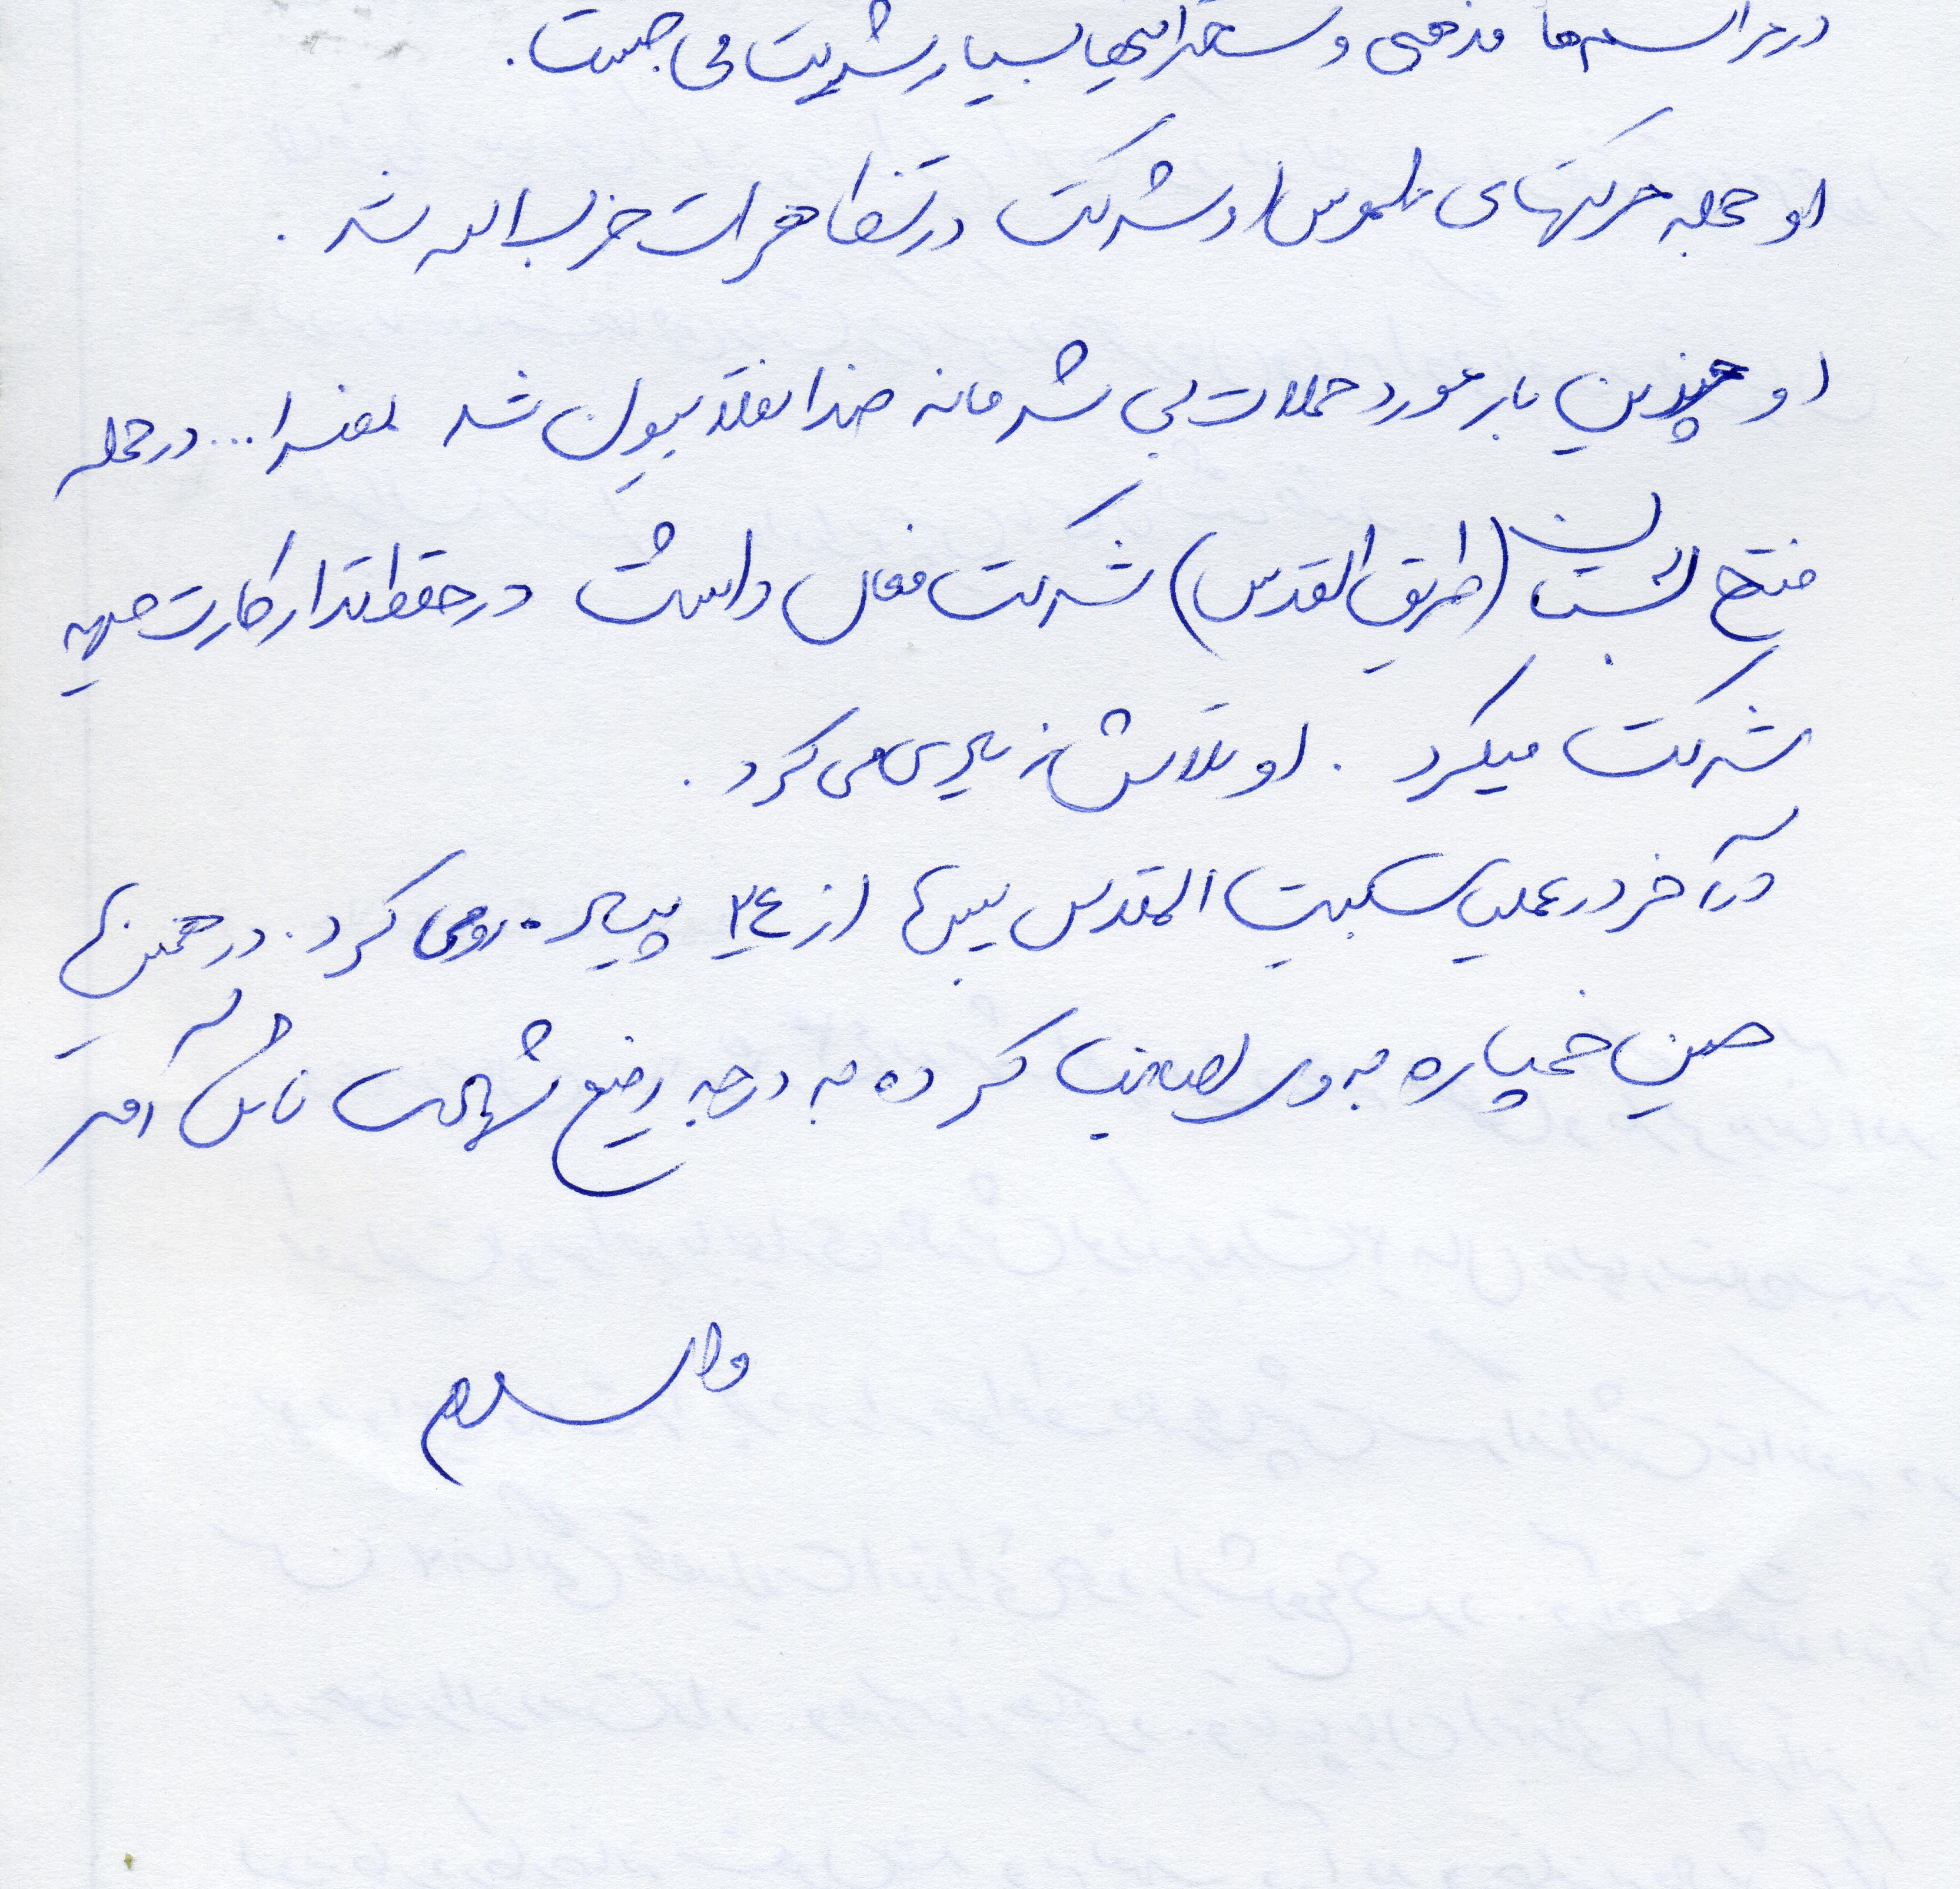 در مراسم‌ها مذهبی و سخنرانیها بسیار شرکت می جست.
او جمله حرکتهای ملموس او شرکت در تظاهرات حزب الله شد.
او چندین بار مورد حملات بی شرمانه ضد انقلابیون شد ... در حمله
فتح بستان (طریق القدس) شرکت فعال داشت در حفظ تدارکات جبهه
شرکت میکرد. او تلاش زیادی می کرد.
در آخر در عملیات بیت المقدس پس از ۲۴ پیاده روی کرد. در همین
حین خمپاره به وی اصابت کرده به درجه رفیع شهادت نائل آمد
والسلام